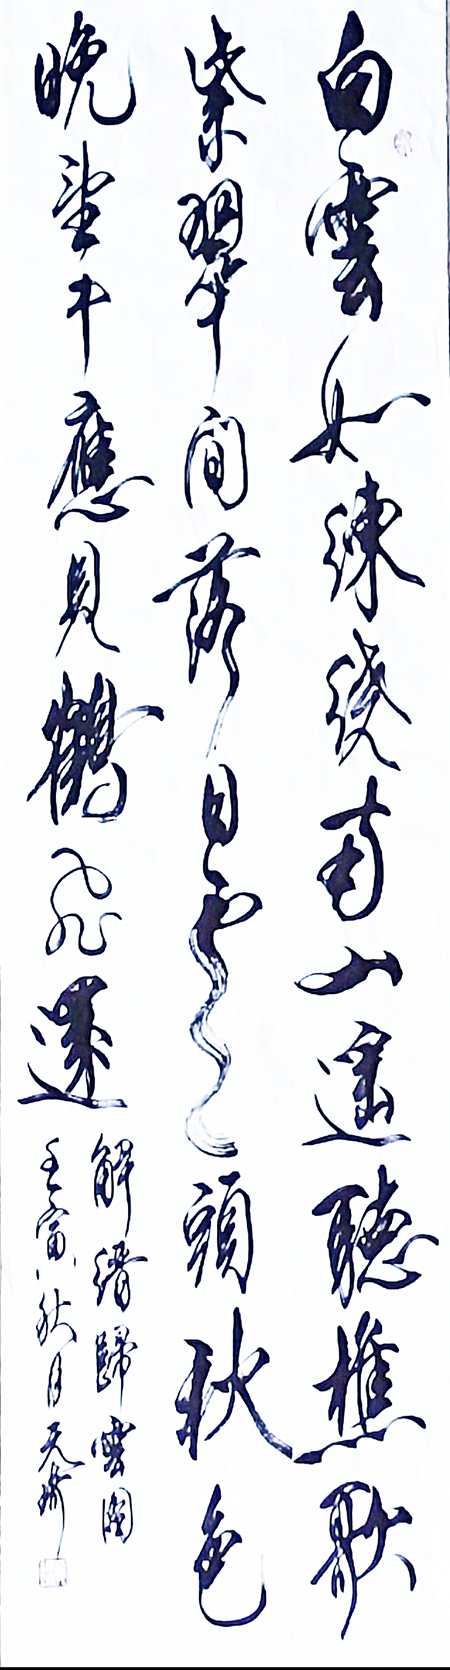 白雲如練繞南山遙聽樵歌
紫翠間落日雲頭秋色
晚望中應見鶴飛還
解縉歸雲圖
壬寅秋月天瑜